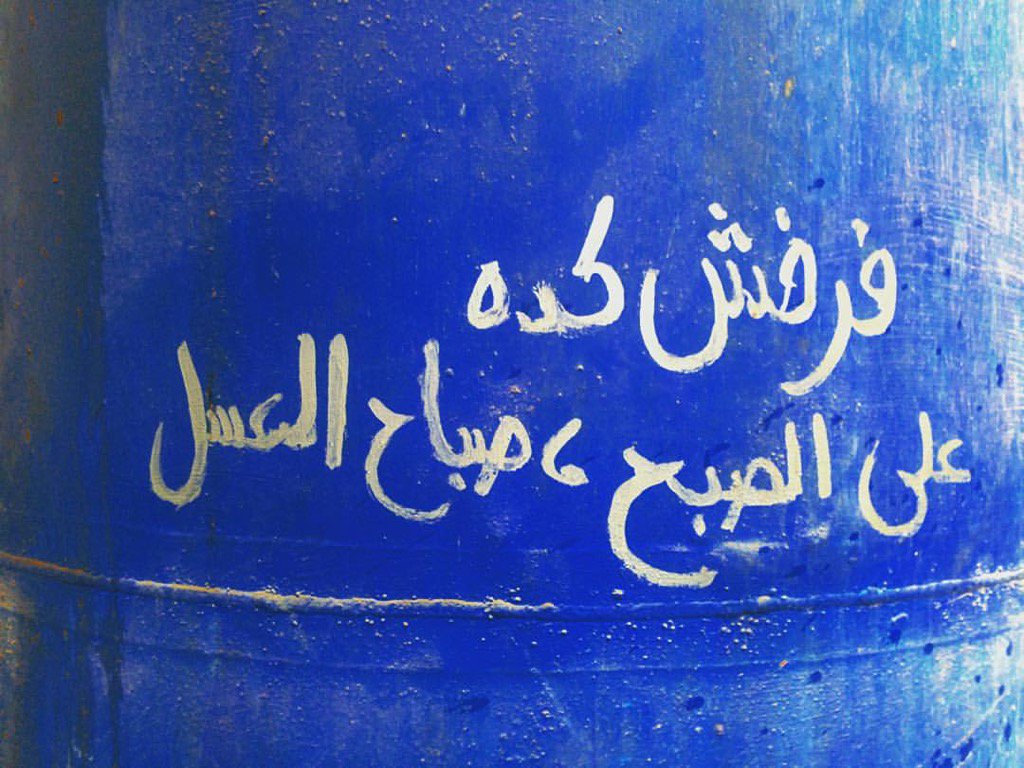 فرفش كده
على الصبح ، صباح العسل